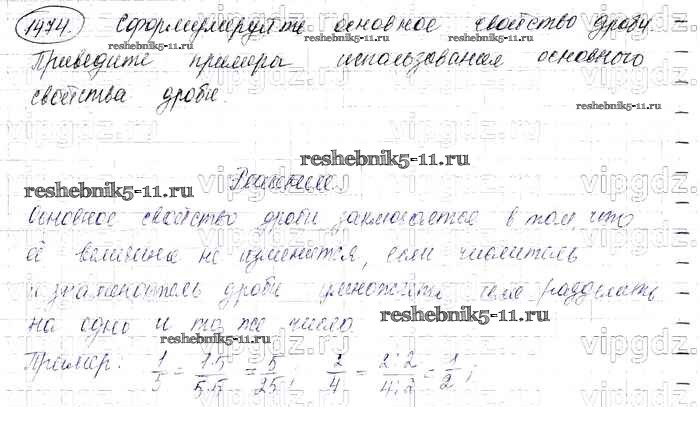 1474. Сформулируйте основное свойство дроби
reshebnik5-11.ru reshebnik5-11.ru reshebnik5-11.ru
Приведите примеры использования основного
свойства дроби.
reshebnik5-11.ru
reshebnik5-11.ru
Решение
reshebnik5-11.ru
Основное свойство дроби заключается в том, что
её величина не изменится, если числитель
и знаменатель дроби умножить или разделить
на одно и то же число.
reshebnik5-11.ru
reshebnik5-11.ru
Пример: 1/5 = 1·5/5·5 = 5/25; 2/4 = 2:2/4:2 = 1/2;
vipgdz.ru